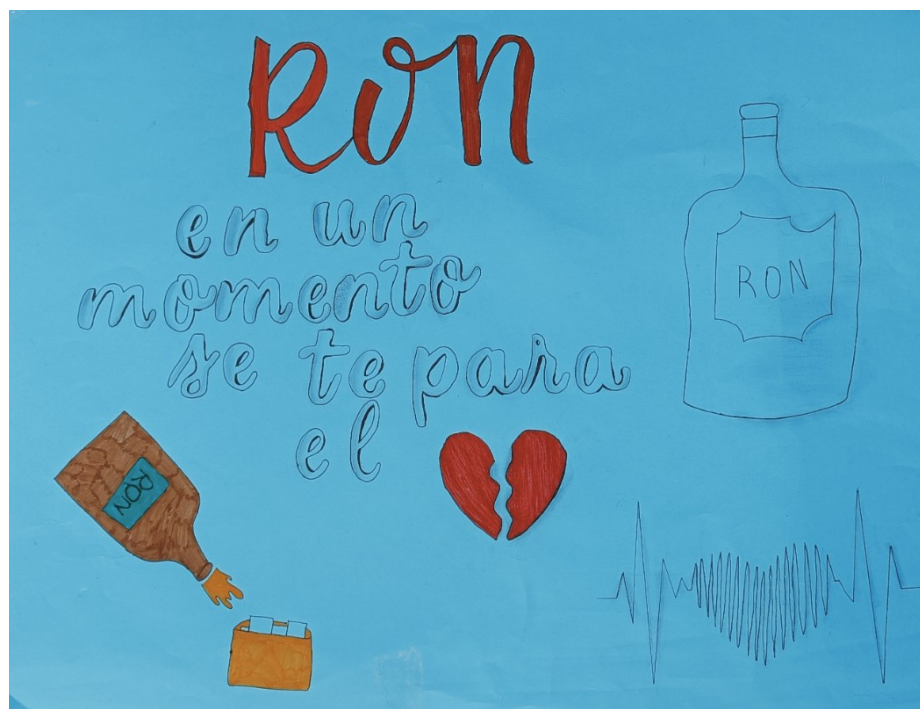 Ron
en un
momento
se te para
el
RON
RON